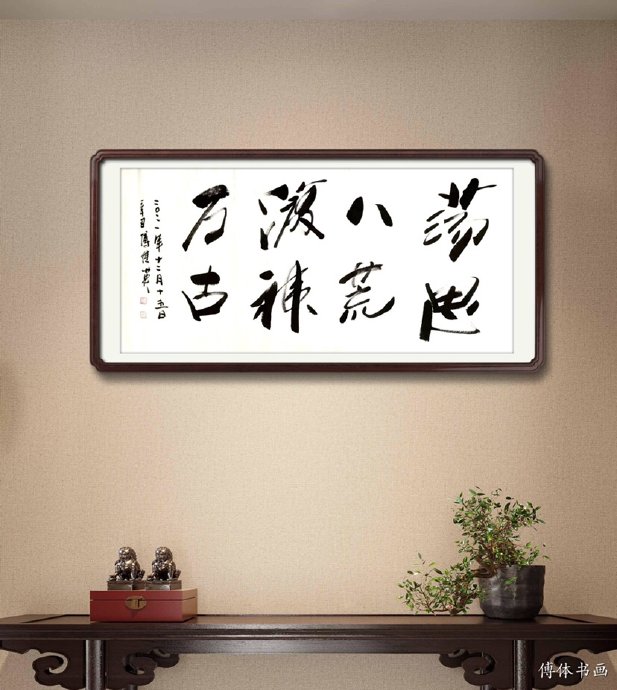 荡思
八荒
游神
万古
二〇二一年十二月十五日
傅体书画